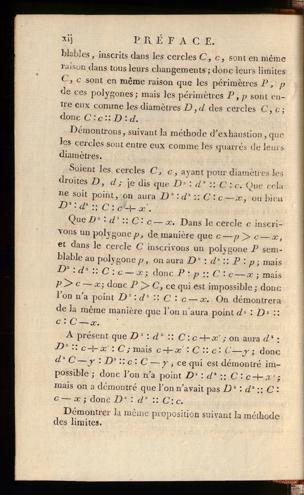 xij PRÉFACE.
blables, inscrits dans les cercles C, c, sont en même
raison dans tous leurs changemens; donc leurs limites
C, c sont en même raison que les périmètres P, p
de ces polygones; mais les périmètres P, p sont en-
tre eux comme les diamètres D, d des cercles C, c;
donc C : c :: D : d.
Démontrons, suivant la méthode d'exhaustion, que
les cercles sont entre eux comme les quarrés de leurs
diamètres.
Soient les cercles C, c, ayant pour diamètres les
droites D, d; je dis que D² : d² :: C : c. Que cela
ne soit point, on aura D² : d² :: C : c — x, ou bien
D² : d² :: C : c + x'.
Que D² : d² :: C : c — x. Dans le cercle c inscri-
vons un polygone p, de manière que c — p > c — x,
et dans le cercle C inscrivons un polygone P sem-
blable au polygone p, on aura D² : d² :: P : p; mais
D² : d² :: C : c — x; donc P : p :: C : c — x; mais
p > c — x; donc P > C, ce qui est impossible; donc
l'on n'a point D² : d² :: C : c — x. On démontrera
de la même manière que l'on n'aura point d² : D² ::
c : C — x.
A présent que D² : d² :: C : c + x', on aura d² :
D² :: c + x' : C; mais c + x' : C :: c : C — y; donc
d² : D² :: c : C — y, ce qui est démontré im-
possible; donc l'on n'a point D² : d² :: C : c + x';
mais on a démontré que l'on n'avait pas D² : d² :: C :
c — x; donc D² : d² :: C : c.
Démontrer la même proposition suivant la méthode
des limites.